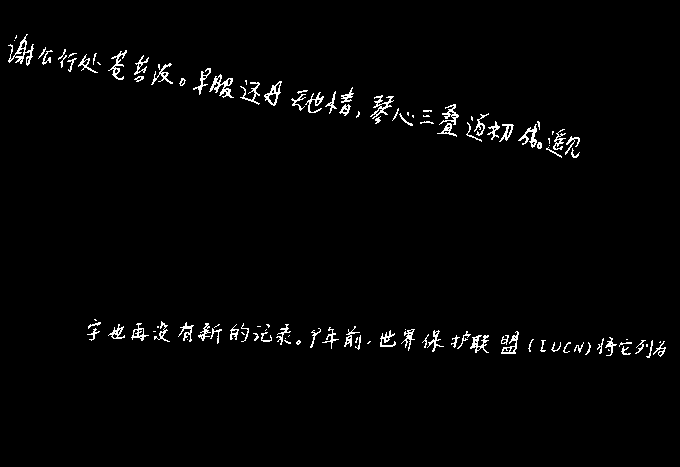 谢公行处苍苔没。早服还丹无世情,琴心三叠道初成。遥见
字也再没有新的记录。9年前,世界保护联盟(IUCN)将它列为